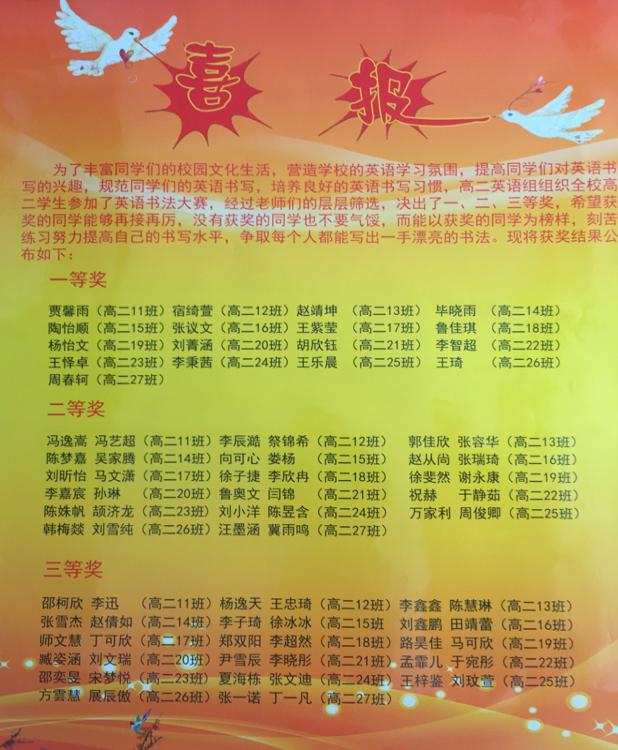 喜报
为了丰富同学们的校园文化生活，营造学校的英语学习氛围，提高同学们对英语书
写的兴趣，规范同学们的英语书写，培养良好的英语书写习惯，高二英语组组织全校高
二学生参加了英语书法大赛，经过老师们的层层筛选，决出了一、二、三等奖，希望获
奖的同学能够再接再厉，没有获奖的同学也不要气馁，而能以获奖的同学为榜样，刻苦
练习努力提高自己的书写水平，争取每个人都能写出一手漂亮的书法。现将获奖结果公
布如下：
一等奖
贾馨雨（高二11班）宿绮萱（高二12班）赵靖坤 （高二13班） 毕晓雨（高二14班）
陶怡顺（高二15班）张议文（高二16班）王紫莹 （高二17班） 鲁佳琪（高二18班）
杨怡文（高二19班）刘菁涵（高二20班）胡欣钰 （高二21班） 李智超（高二22班）
王怿卓（高二23班）李秉茜（高二24班）王乐晨 （高二25班） 王琦 （高二26班）
周春轲（高二27班）
二等奖
冯逸嵩 冯艺超（高二11班）李辰澔 祭锦希（高二12班） 郭佳欣 张容华（高二13班）
陈梦嘉 吴家腾（高二14班）向可心 娄杨 （高二15班） 赵从尚 张瑞琦（高二16班）
刘昕怡 马文潇（高二17班）徐子捷 李欣冉（高二18班） 徐斐然 谢永康（高二19班）
李嘉宸 孙琳 （高二20班）鲁奥文 闫锦 （高二21班） 祝赫 于静茹（高二22班）
陈姝帆 颉济龙（高二23班）刘小洋 陈昱含（高二24班） 万家利 周俊卿（高二25班）
韩梅燚 刘雪纯（高二26班）汪墨涵 冀雨鸣（高二27班）
三等奖
邵柯欣 李迅 （高二11班）杨逸天 王忠琦（高二12班）李鑫鑫 陈慧琳（高二13班）
张雪杰 赵倩如（高二14班）李子琦 徐冰冰（高二15班 刘鑫鹏 田靖蕾（高二16班）
师文慧 丁可欣（高二17班）郑双阳 李超然（高二18班）路昊佳 马可欣（高二19班）
臧姿涵 刘文瑞（高二20班）尹雪辰 李晓彤（高二21班）孟霏儿 于宛彤（高二22班）
邵奕旻 宋梦悦（高二23班）夏海栋 张文迪（高二24班）王梓鉴 刘玟萱（高二25班）
方雲慧 展辰傲（高二26班）张一诺 丁一凡（高二27班）